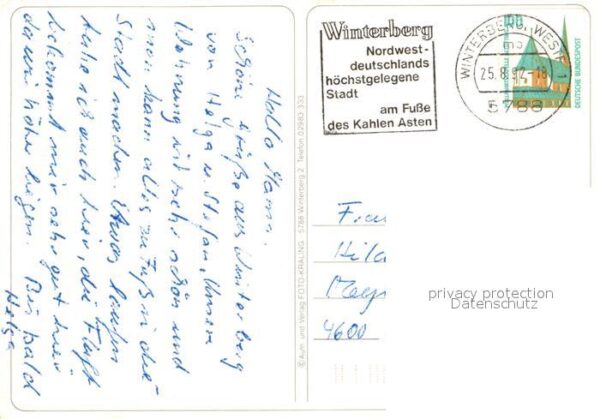 Hallo Hann.
Schöne Grüße aus Winterberg
von Helga u. Stefan. Unsere
Wohnung ist sehr schön und
man kann alles zu Fuß in die
Stadt machen. Etwas laufen
tuhe ich auch hier, die Luft
bekommt mir sehr gut hier
da wir höher liegen. Bis bald
Helga
© Aufn. und Verlag FOTO-KRALING · 5788 Winterberg 2 · Telefon 02983 333
Winterberg
Nordwest-
deutschlands
höchstgelegene
Stadt
am Fuße
des Kahlen Asten
WINTERBERG, WESTF 1
25.8.92-18
5788
DEUTSCHE BUNDESPOST
Hild
4600
privacy protection
Datenschutz